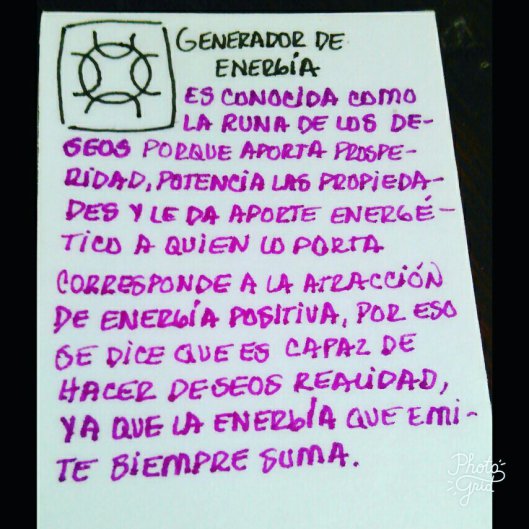 GENERADOR DE
ENERGÍA
ES CONOCIDA COMO
LA RUNA DE LOS DE-
SEOS PORQUE APORTA PROSPE-
RIDAD, POTENCIA LAS PROPIEDA-
DES Y LE DA APORTE ENERGÉ-
TICO A QUIEN LO PORTA
CORRESPONDE A LA ATRACCIÓN
DE ENERGÍA POSITIVA, POR ESO
SE DICE QUE ES CAPAZ DE
HACER DESEOS REALIDAD,
YA QUE LA ENERGÍA QUE EMI-
TE SIEMPRE SUMA.
Photo
Grid